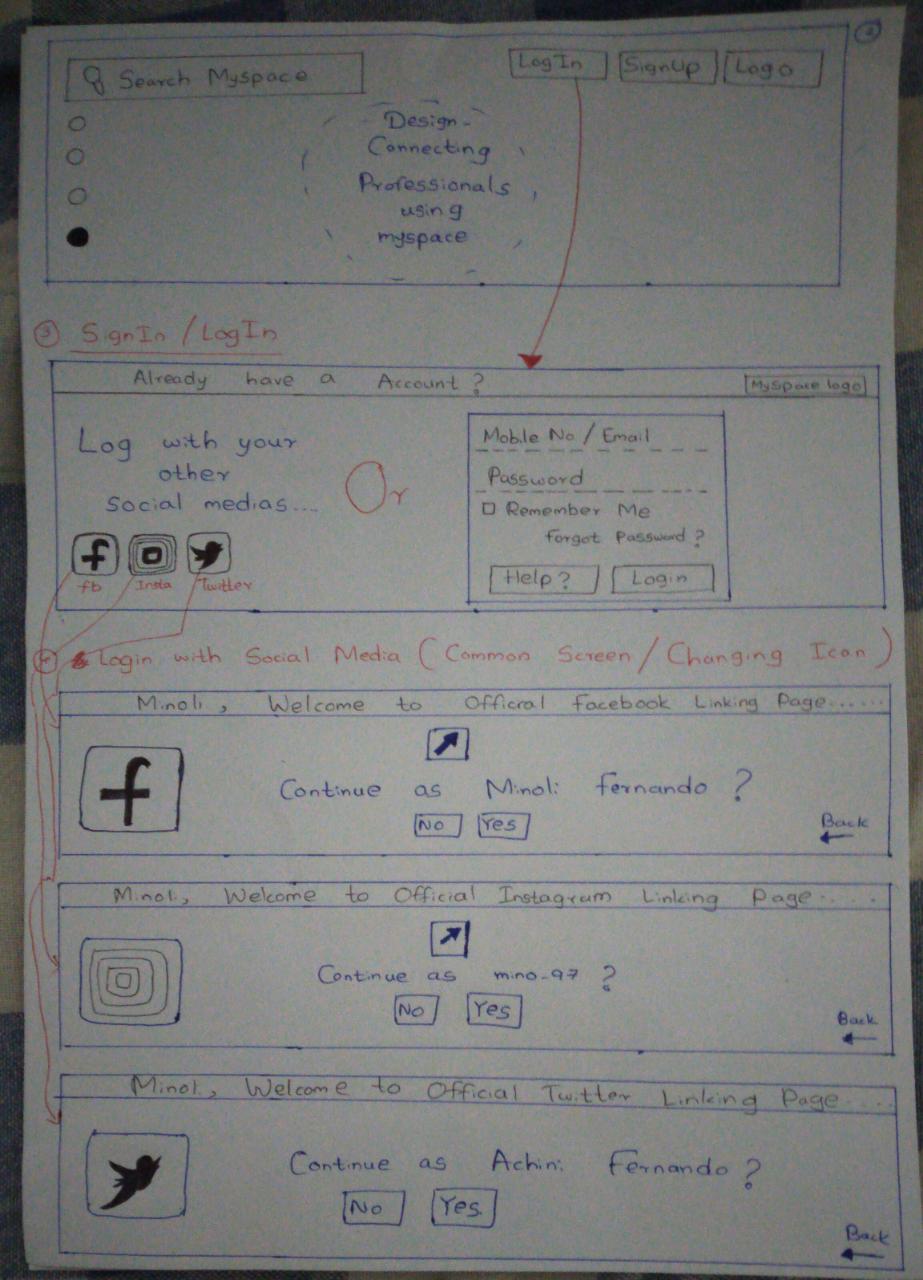 2
Search Myspace
LogIn SignUp Logo
Design -
Connecting
Professionals
using
myspace
3 SignIn / LogIn
Already have a Account ?
MySpace logo
Log with your
other
Social medias....
Or
Mobile No / Email
Password
Remember Me
Forgot Password ?
Help ? Login
fb Insta Twitter
4 Login with Social Media ( Common Screen / Changing Icon )
Minoli, Welcome to Official Facebook Linking Page......
Continue as Minoli Fernando ?
No Yes
Back
Minoli, Welcome to Official Instagram Linking Page.....
Continue as mino-97 ?
No Yes
Back
Minoli, Welcome to Official Twitter Linking Page.....
Continue as Achini Fernando ?
No Yes
Back